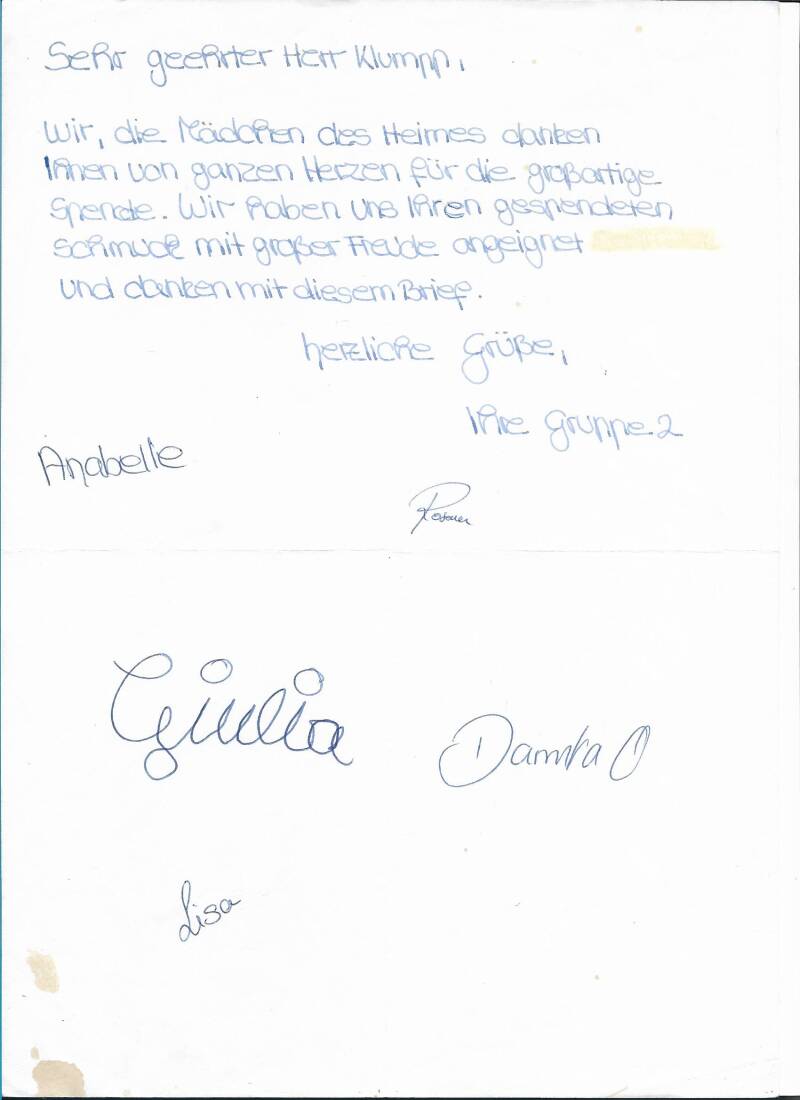 Sehr geehrter Herr Klumpp,
Wir, die Mädchen des Heimes danken
Ihnen von ganzen Herzen für die großartige
Spende. Wir haben uns Ihren gespendeten
Schmuck mit großer Freude angeignet
und danken mit diesem Brief.
herzliche Grüße,
Ihre Gruppe 2
Anabelle
Giulia
Lisa